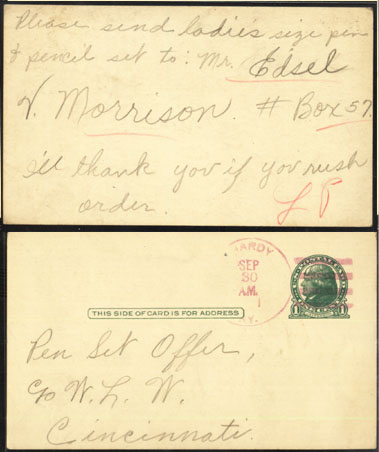 Please send ladies size pen
& pencil set to: Mr. Edsel
V. Morrison. # Box 57.
I'll thank you if you rush
order.
L P
HARDY
SEP
30
AM.
1
KY.
THIS SIDE OF CARD IS FOR ADDRESS
1 1
Pen Set Offer,
c/o W. L. W.
Cincinnati.